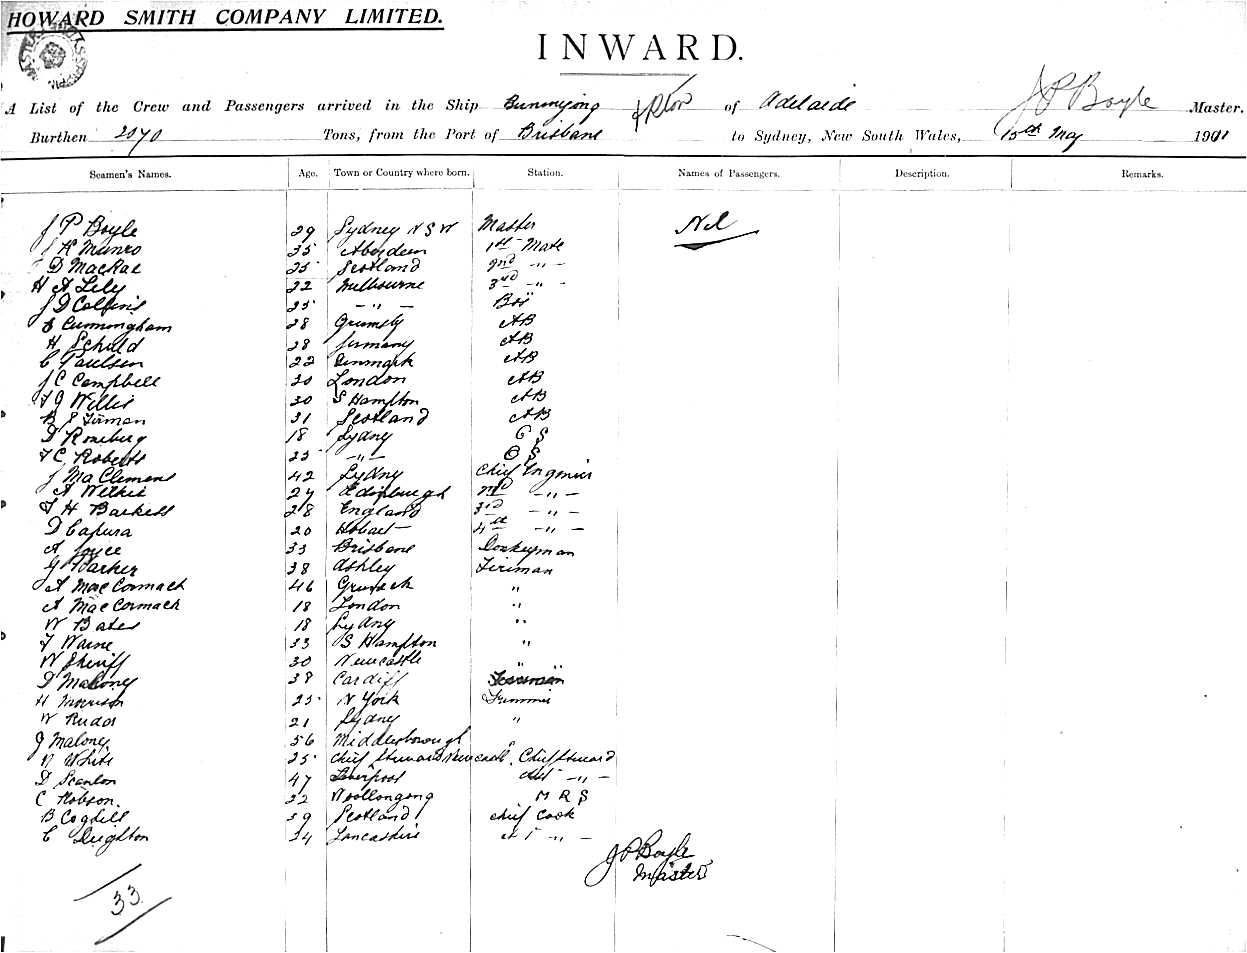 HOWARD SMITH COMPANY LIMITED.
INWARD.
A List of the Crew and Passengers arrived in the Ship Buninyong of Adelaide J P Boyle Master.
Burthen 2070 Tons, from the Port of Brisbane to Sydney, New South Wales, 15th May 1901
Seamen's Names. Age. Town or Country where born. Station. Names of Passengers. Description. Remarks.
J P Boyle 29 Sydney N S W Master Nil
J R Munro 35 Aberdeen 1st Mate
D MacRae 25 Scotland 2nd -„-
H A Lily 22 Melbourne 3rd -„-
J D Collins 25 -„- Bos
E Cunningham 28 Grimsby AB
H Schuld 28 Germany AB
C Paulsen 22 Denmark AB
J C Campbell 30 London AB
F J Willis 30 S Hampton AB
B S Firman 31 Scotland AB
D Roseburg 18 Sydny O S
F C Roberts 25 -„- O S
J MaClemens 42 Sydny Chief Engineer
A Wilkie 27 Edinburgh 2nd -„-
F H Barkess 28 England 3rd -„-
D Capura 20 Hobart 4th -„-
A Joyce 33 Brisbane Donkeyman
G Parker 38 Ashley Fireman
A MacCormack 46 „
A MacCormack 18 London „
W Bates 18 Sydny „
F Warne 33 S Hampton „
W Sheriff 30 Newcastle „
D Maloney 38 Cardiff
H Morrison 25 N York Trimmer
W Rudos 21 Sydny „
J Maloney 56 Middlesborough „
N White 25 Chief Steward Newcastle, Chief Steward
D Scanlon 47 Liverpool -„-
C Robson. 32 Woollongong M R S
B Coghill 39 Scotland Chief Cook
C Deighton 34 Lancashire -„-
J P Boyle
Master
33